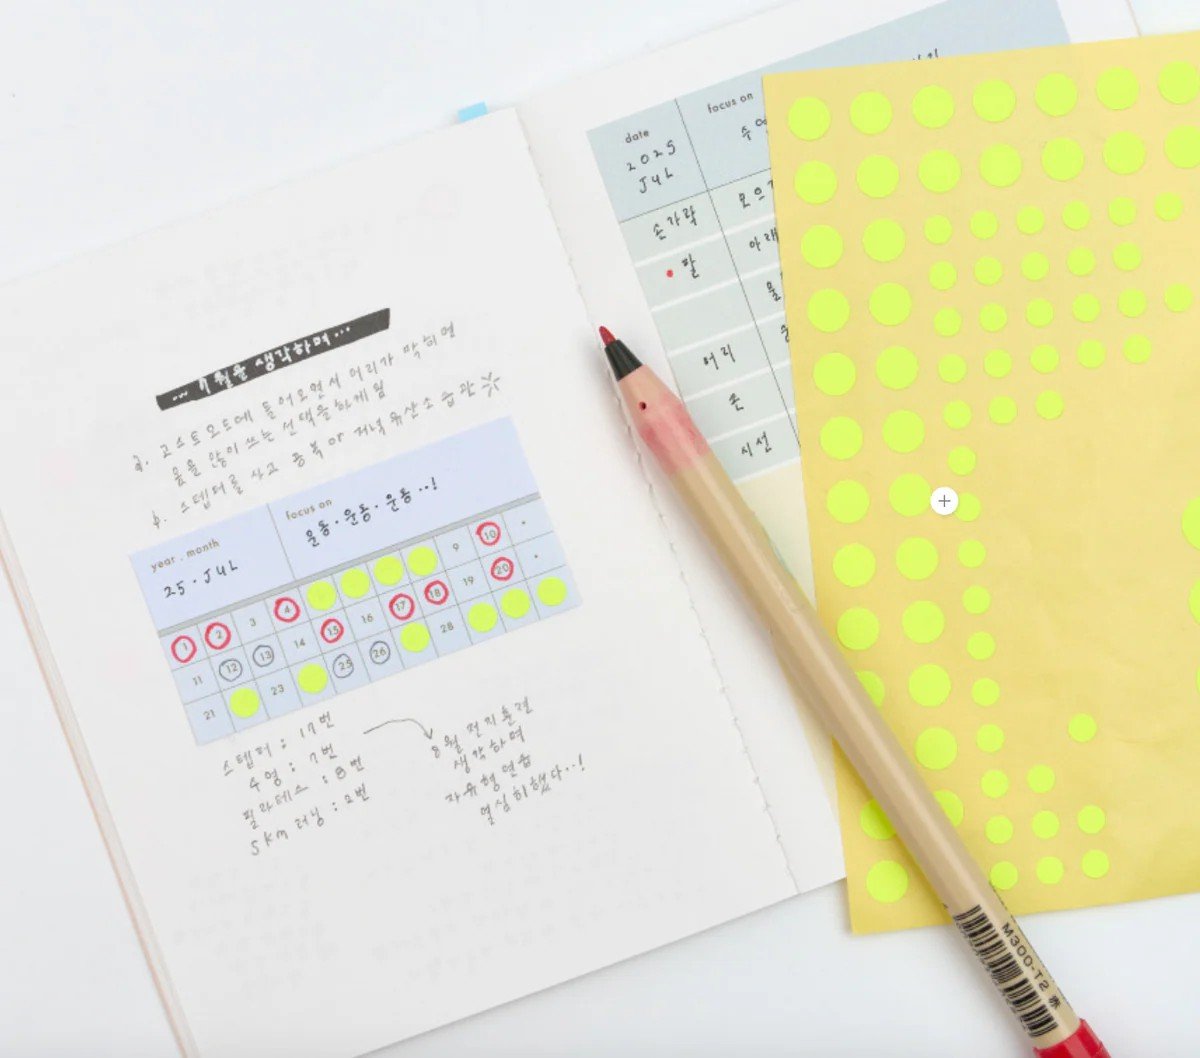 ... 7월을 생각하며...
a. 고스트모드에 들어오면서 머리가 막히면
몸을 많이 쓰는 선택을 하게됨
b. 스텝퍼를 사고 공복 or 저녁 유산소 습관
year . month
25 . JUL
focus on
운동 . 운동 . 운동 . . !
1 2 3 4 9 10 .
11 12 13 14 15 16 17 18 19 20 .
21 23 25 26 28
스텝퍼 : 17번
수영 : 7번
필라테스 : 8번
5km 러닝 : 2번
8월 전지훈련
생각하며
자유형 연습
열심히했다..!
date
2025
JUL
focus on
수영
손가락
모으기
• 팔
아래
머리
손
시선
M300-T2 赤